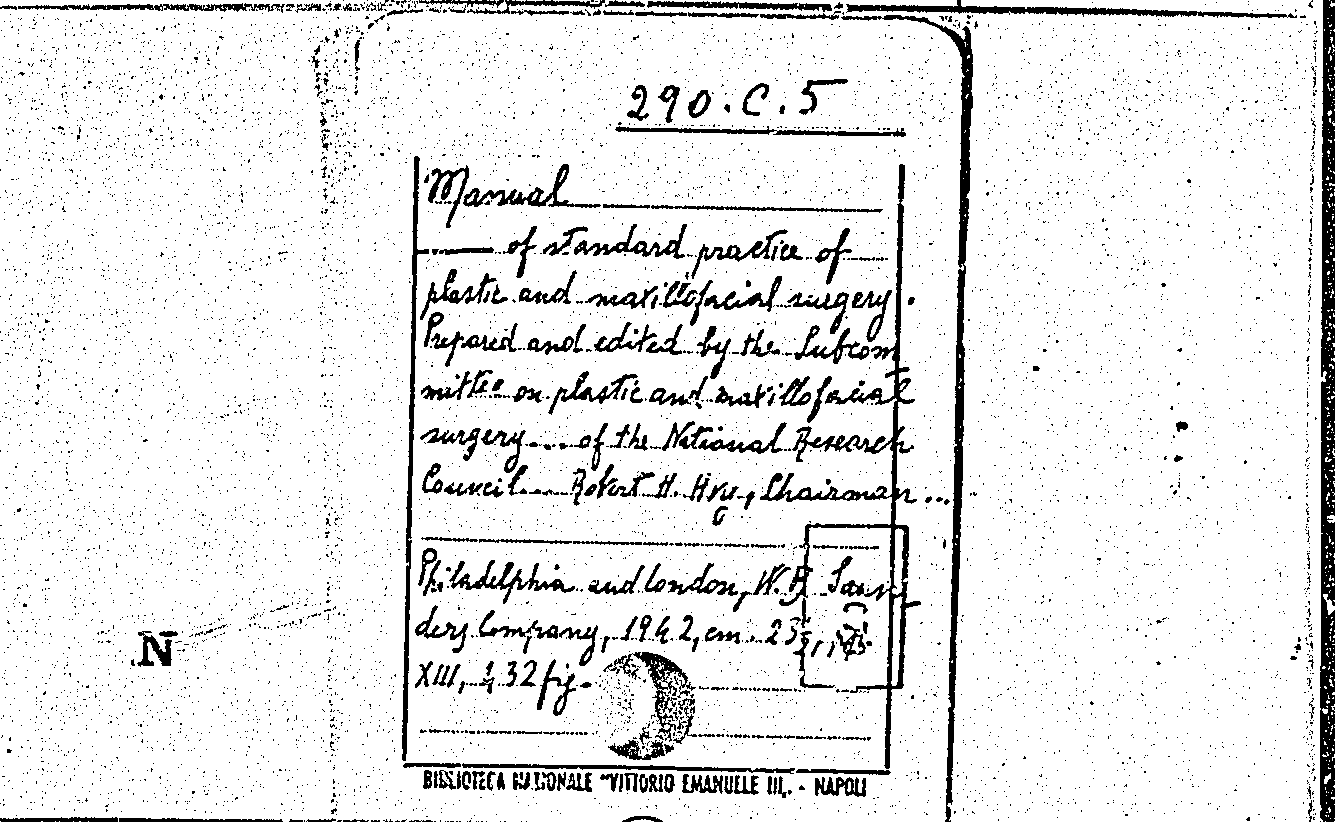 290.C.5
Manual
—— of standard practice of
plastic and maxillofacial surgery.
Prepared and edited by the Subcom
mittee on plastic and maxillofacial
surgery... of the National Research
Council... Robert H. Ivy, Chairman...
Philadelphia and London, W.B. Saun-
ders Company, 1942, cm. 23
XIII, 432 fig.
N
BIBLIOTECA NAZIONALE "VITTORIO EMANUELE III" - NAPOLI